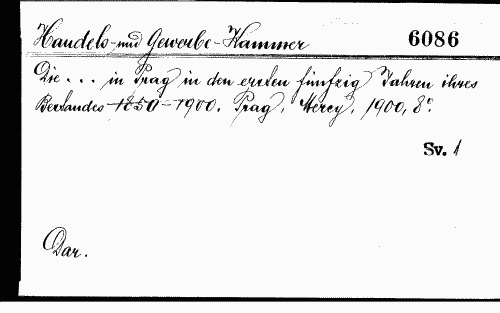 Handels- und Gewerbe-Kammer 6086
Die ... in Prag in den ersten fünfzig Jahren ihres
Bestandes 1850-1900. Prag, Mercy, 1900, 8°.
Sv. 1
Dar.